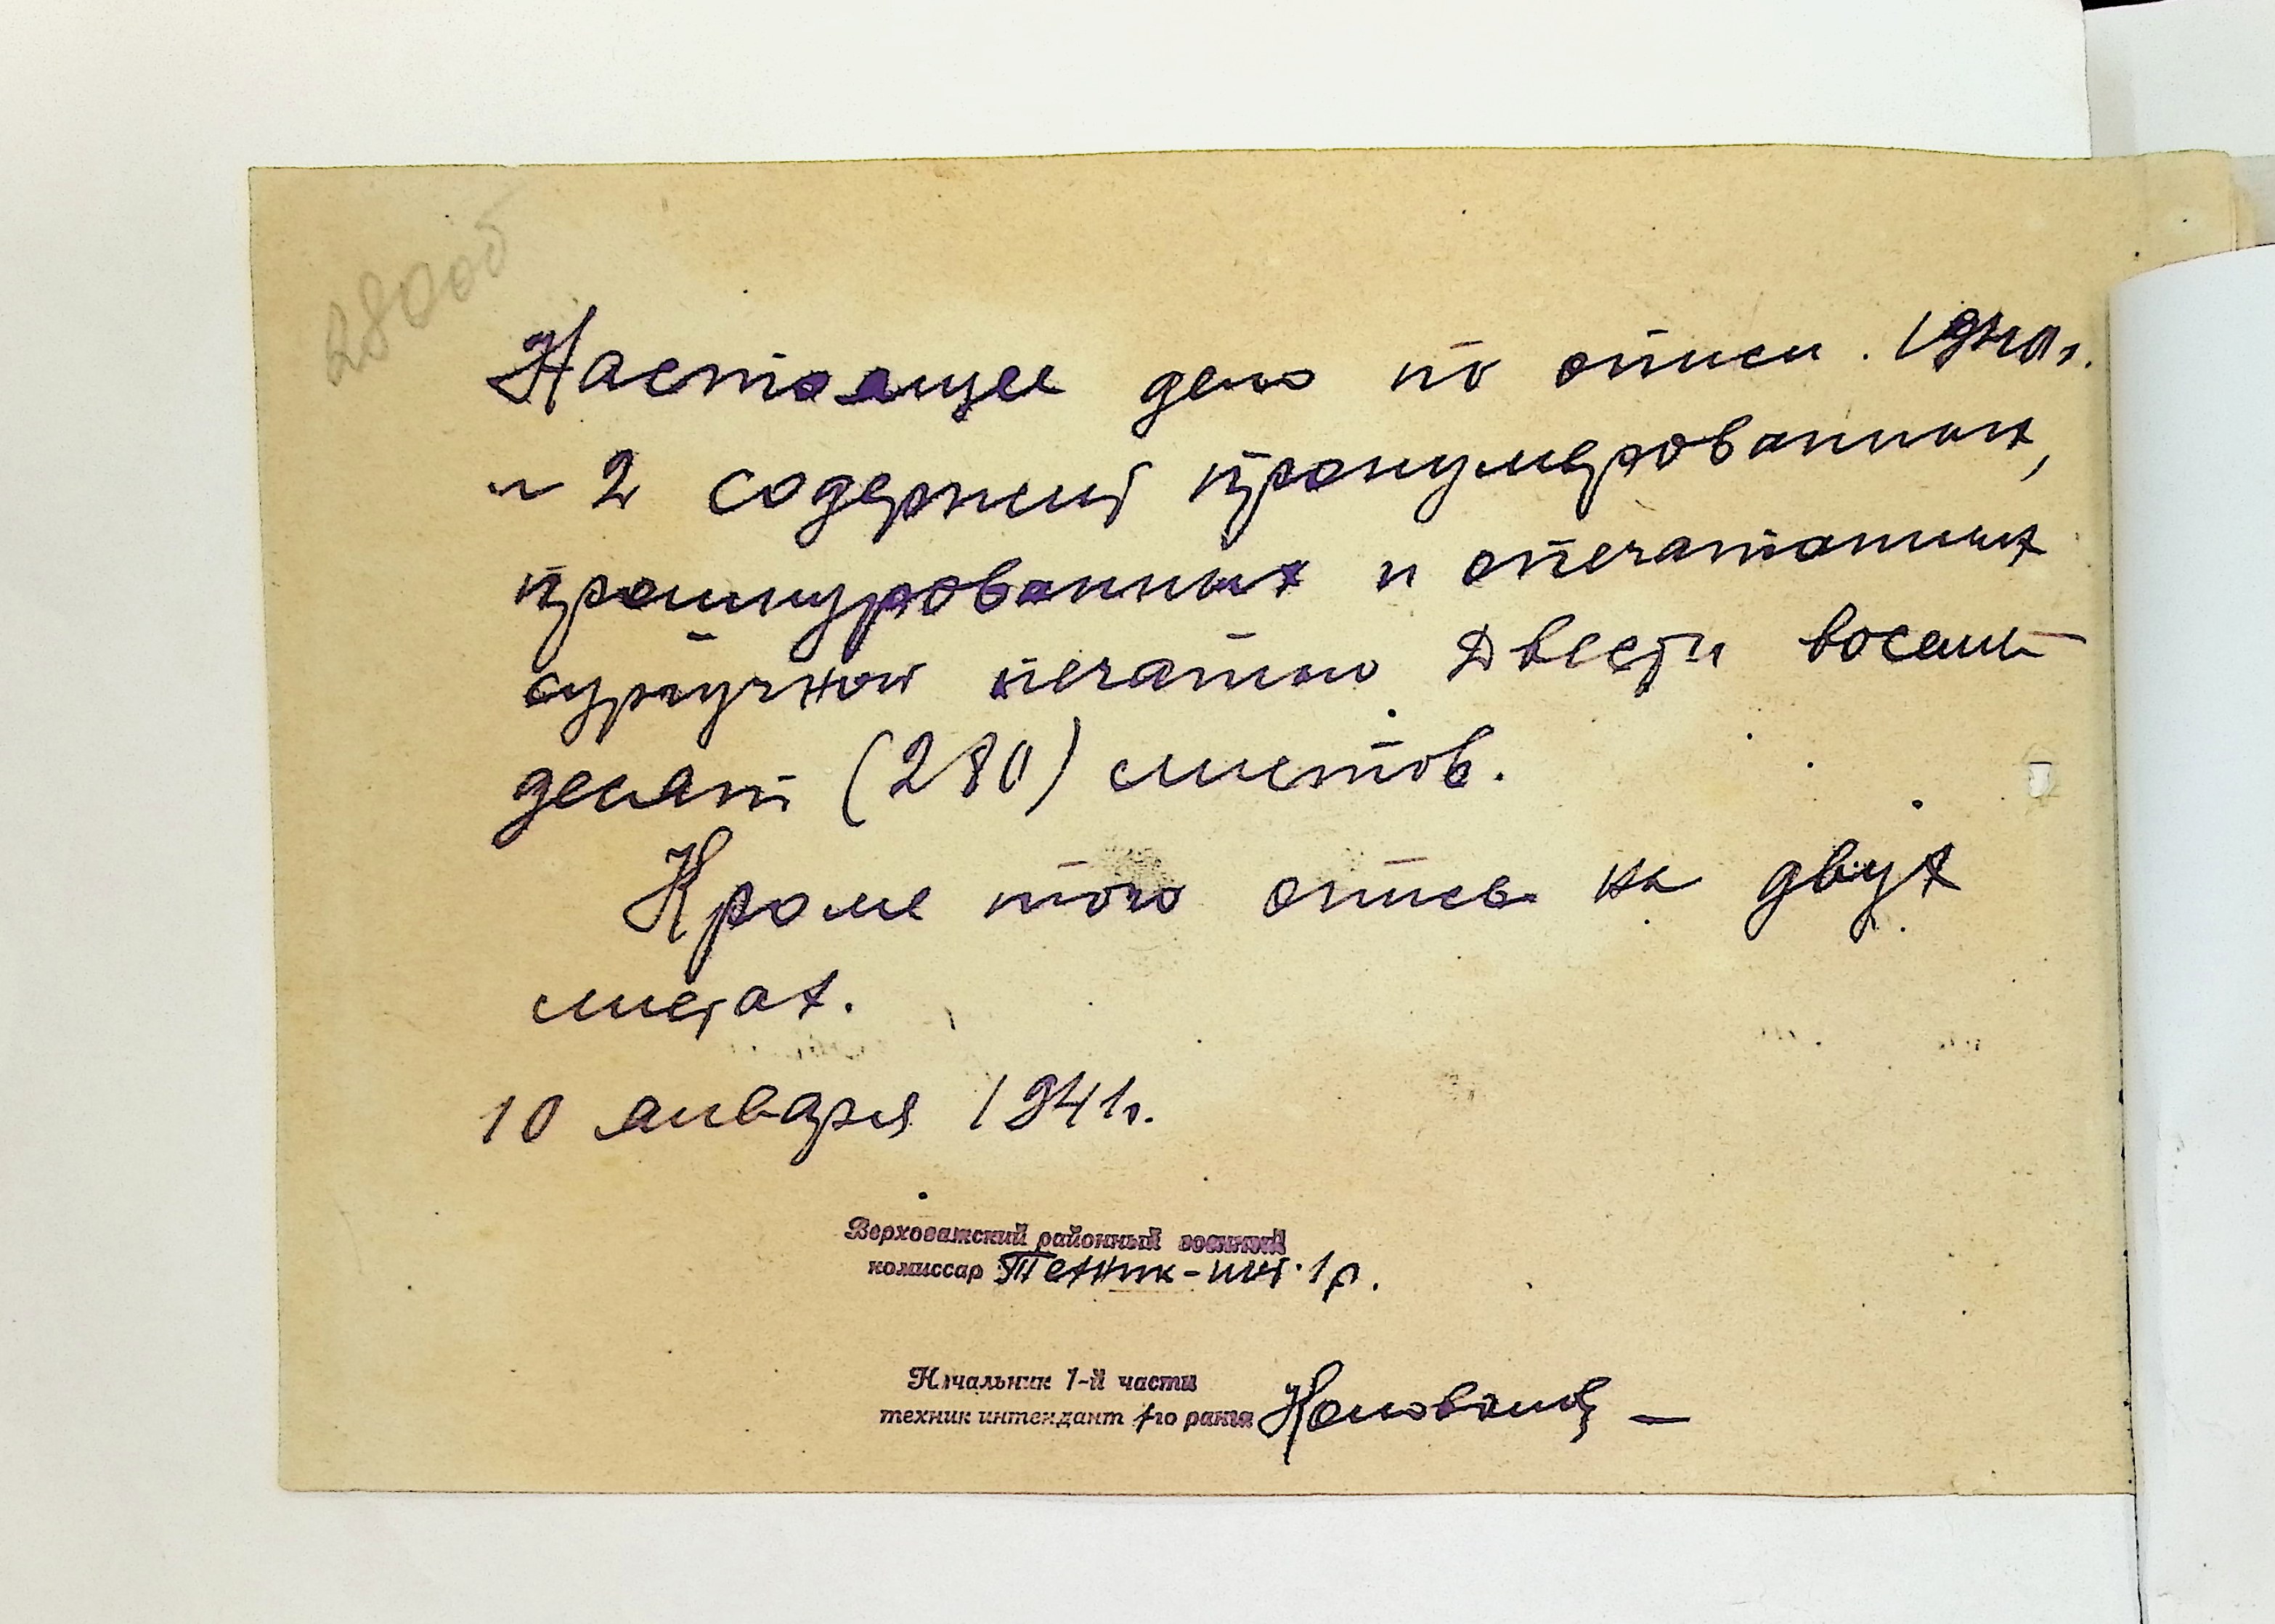 280об
Настоящее дело по описи. 1940 г.
№ 2 содержит пронумерованных,
прошнурованных и опечатанных
сургучной печатью Двести восемь
десят (280) листов.
Кроме того опись на двух
листах.
10 января 1941 г.
Верховажский районный военный
комиссар Техник-инт. 1 р.
Начальник 1-й части
техник интендант 1го ранга